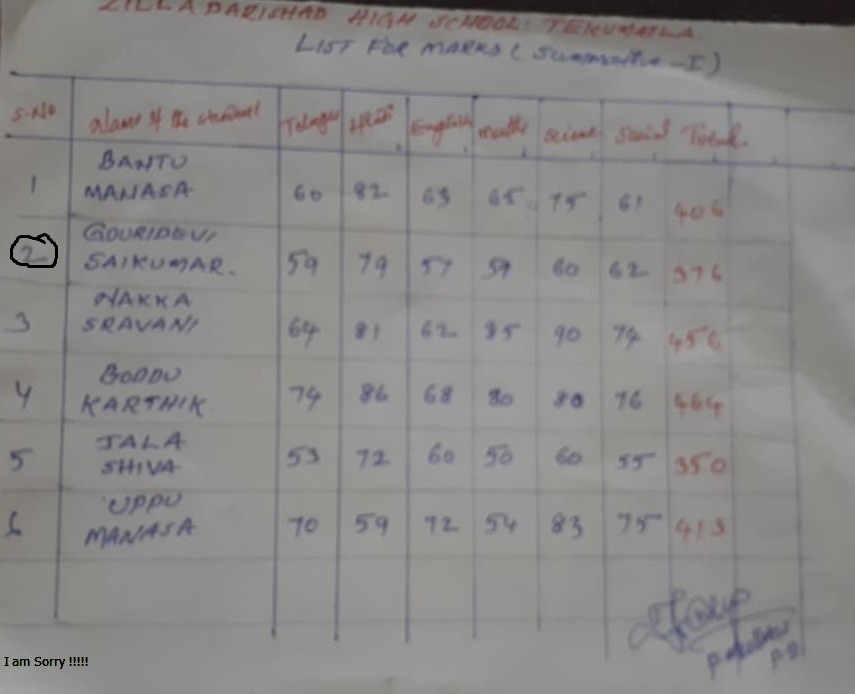 ZILLA PARISHAD HIGH SCHOOL: TEKUMATLA
LIST FOR MARKS (Summative - I)
S.No Name of the student Telugu Hindi English Maths Science Social Total
BANTU
1 MANASA 60 82 63 65 75 61 406
GOURIDEVI
2 SAIKUMAR. 59 79 57 59 60 62 376
NAKKA
3 SRAVANI 64 81 62 85 90 74 456
BODDU
4 KARTHIK 74 86 68 80 80 76 464
JALA
5 SHIVA 53 72 60 50 60 55 350
UPPU
6 MANASA 70 59 72 54 83 75 413
I am Sorry !!!!!